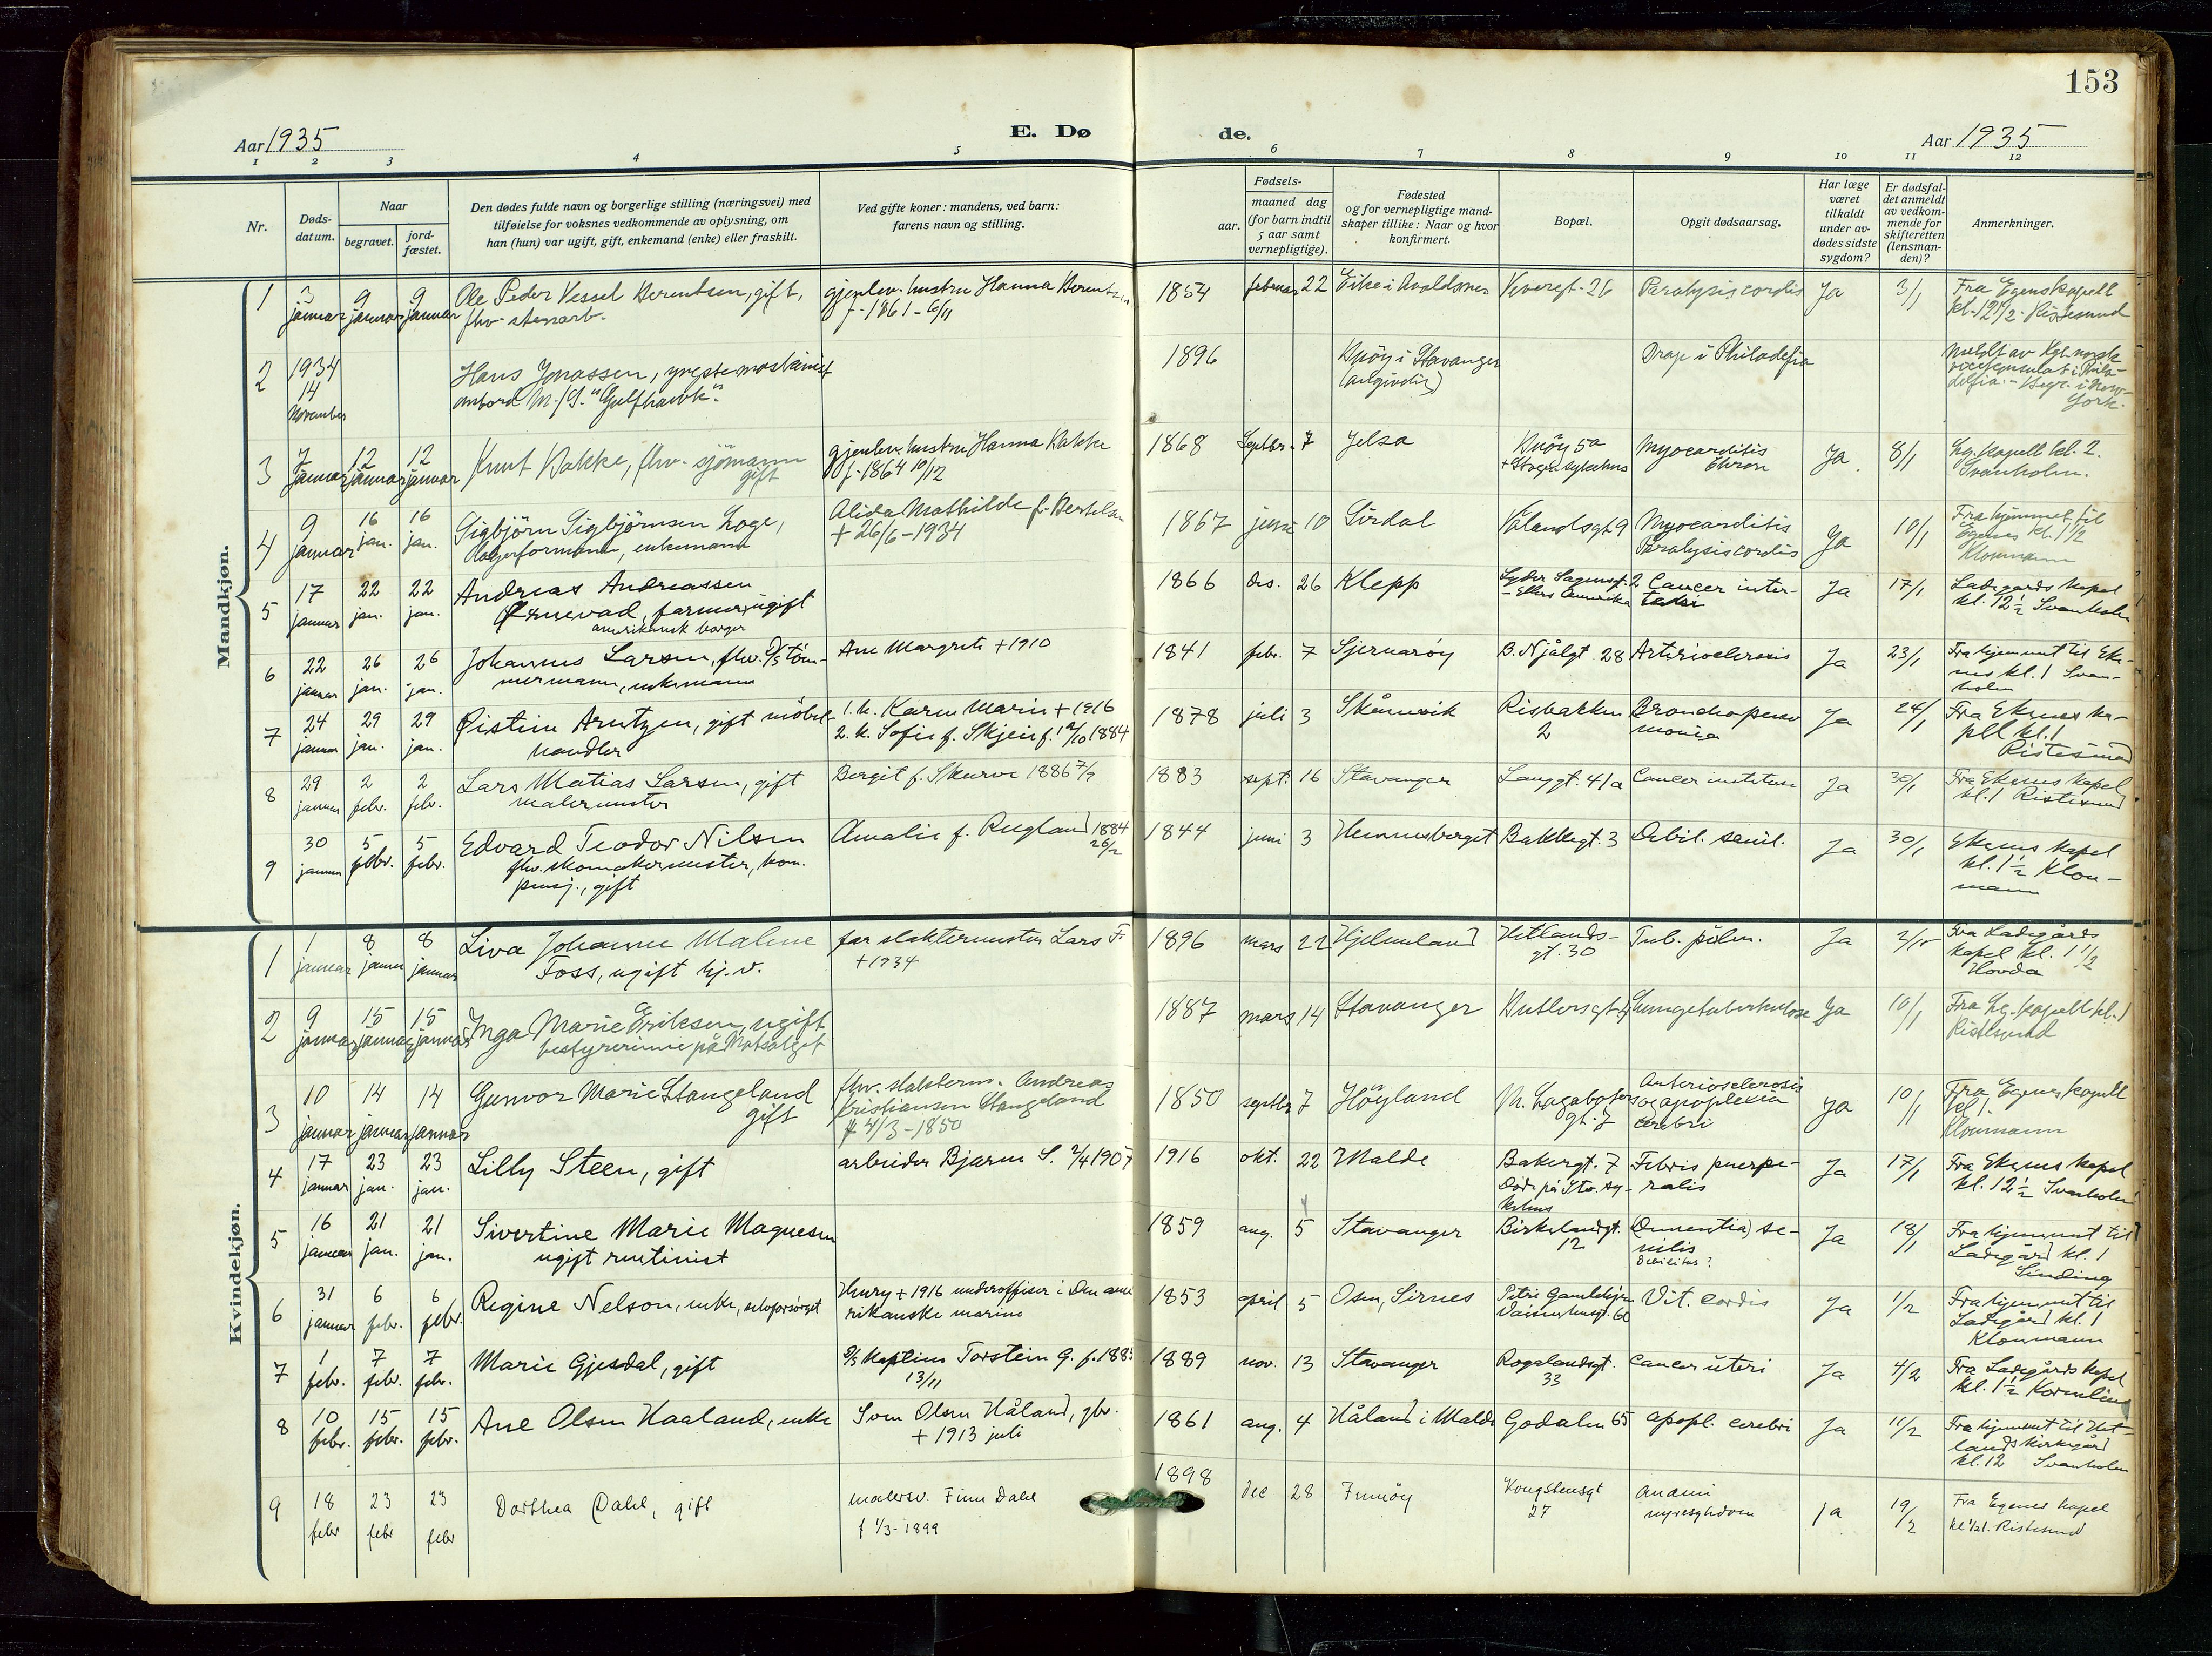 153
Aar 1935
E. Dø
de.
Aar 1935
1 2 3 4 5 6 7 8 9 10 11 12
Nr.
Døds-
datum.
Naar
begravet.
jord-
fæstet.
Den dødes fulde navn og borgerlige stilling (næringsvei) med
tilføielse for voksnes vedkommende av oplysning, om
han (hun) var ugift, gift, enkemand (enke) eller fraskilt.
Ved gifte koner: mandens, ved barn:
farens navn og stilling.
Fødsels-
aar.
maaned dag
(for barn indtil
5 aar samt
vernepligtige).
Fødested
og for vernepligtige mand-
skaper tillike: Naar og hvor
konfirmert.
Bopæl.
Opgit dødsaarsag.
Har læge
været
tilkaldt
under av-
dødes sidste
sygdom?
Er dødsfal-
det anmeldt
av vedkom-
mende for
skifteretten
(lensman-
den)?
Anmerkninger.
Mandkjøn.
1
3 januar
9 januar
9 januar
Ole Peder Vessel Berentsen, gift,
fhv. stenarb.
gjenlev. hustru Hanna Berentsen
f. 1861 - 6/11
1854 februar 22
Eike i Avaldsnes
Veveregt. 26
Paralysis cordis
Ja
3/1
Fra Egenes kapell
kl. 12 1/2. Ristesund
2
1934
14
November
Hans Jonassen, yngste maskinist
ombord M/S. "Gulfhawk".
1896
Buöy i Stavanger
(angivelig)
Drap i Philadefia
meldt av Kgl. norsk
vicekonsulat i Phila-
delfia. - Begr. i New-
York.
3
7 januar
12 januar
12 januar
Knut Bakke, fhv. sjömann
gift
gjenlev. hustru Hanna Bakke
f. 1864 10/12
1868 Septbr. 7
Jelsa
Buöy 5a
Myocarditis
chron
Ja.
8/1
Lg. kapell kl. 2.
Svanholm.
4
9 januar
16 jan.
16 jan.
Sigbjörn Sigbjörnsen Loge,
lagerformann, enkemann
Alida Mathilde f. Bertelsen
+ 26/6 - 1934
1867 juni 10
Sirdal
Vålandsgt 9
Myocarditis
Paralysis cordis
Ja
10/1
Fra hjemmet til
Egenes kl. 1 1/2
Kloumann
5
17 januar
22 jan.
22 jan.
Andreas Andreassen
Ørnevad, farmer, ugift
amerikansk borger
1866 des. 26
Klepp
Lyder Sagensgt. 2
- Ellers Amerika
Cancer inter-
Ja
17/1
Ladegårds kapel
kl. 12 1/2 Svanholm
6
22 januar
26 jan.
26 jan.
Johannes Larsen, fhv. D/S töm-
mermann, enkemann
Ane Margrete + 1910
1841 febr. 7
Sjernaröy
B. Njålgt. 28
Arteriosclerosis
Ja
23/1
Fra hjemmet til Eke-
nes kl. 1 Svan-
holm
7
24 januar
29 jan.
29 jan.
Øistein Arntzen, gift möbel-
handler
1. h. Karen Marie + 1916
2. h. Sofie f. Skjeie f. 12/10 1884
1878 juli 3
Skånevik
Risbakken
2
Bronchopneu
monia
Ja
24/1
Fra Ekenes ka-
pell kl. 1
Ristesund
8
29 januar
2 febr.
2 febr.
Lars Matias Larsen, gift
malermester
Bergit f. Skurve 1886 7/9
1883 sept. 16
Stavanger
Langgt. 41a
Cancer
Ja
30/1
Fra Ekenes kapel
kl. 1 Ristesund
9
30 januar
5 febr.
5 febr.
Edvard Teodor Nilsen
fhv. skomakermester, kom.
pensj., gift
Amalie f. Rugland 1884
26/2
1844 juni 3
Hemnesberget
Bakkegt. 3
Debil. senil.
Ja
30/1
Ekenes kapel
kl. 1 1/2 Klou-
mann
Kvindekjøn.
1
1 januar
8 januar
8 januar
Liva Johanne Malene
Foss, ugift hj. v.
far slaktermester Lars F.
+ 1934
1896 mars 22
Hjelmeland
Hetlands-
gt. 30
Tub. pulm.
Ja
Fra Ladegårds
kapel kl. 1 1/2
Hovda
2
9 januar
15 januar
15 januar
Inga Marie Eriksen, ugift
bestyrerinne på Matsalget
1887 mars 14
Stavanger
Lungetuberkulose
Ja
10/1
Fra Lg. kapell kl. 1
Ristesund
3
10 januar
14 januar
14 januar
Gunvor Marie Stangeland
gift
fhv. slakterm. Andreas
Kristiansen Stangeland
f 4/3 - 1850
1850 septbr 7
Höyland
M. Lagabøters
gt. 7
Arteriosclerosis
og apoplexia
cerebri
Ja
10/1
Fra Egenes kapell
kl. 1.
Kloumann
4
17 januar
23 jan.
23 jan.
Lilly Steen, gift
arbeider Bjarne S. 2/4 1907
1916 okt. 22
Malde
Bakergt. 7
Död på Stv. sy-
kehus
Febris puerpe-
ralis
Ja
17/1
Fra Ekenes kapel
kl. 12 1/2 Svanholm
5
16 januar
21 jan.
21 jan.
Sivertine Marie Magnesen
ugift rentinist
1859 aug. 5
Stavanger
Birkelandgt.
12
(Dementia) se-
nilis
Debilitas?
Ja
18/1
Fra hjemmet til
Ladegård kl. 1
Sinding
6
31 januar
6 febr.
6 febr.
Regine Nelson, enke, selvforsørget
Henry + 1916 underoffiser i Den ame
rikanske marine
1853 april 5
Osen, Sirnes
Petri Gamlehjem
Vaisenhusgt. 60
Vit. cordis
Ja
1/2
Fra hjemmet til
Ladegård kl. 1
Kloumann
7
1 febr.
7 febr.
7 febr.
Marie Gjesdal, gift
D/S kaptein Torstein G. f. 1885
13/11
1889 nov. 13
Stavanger
Rogalandsgt.
33
Cancer uteri
Ja
4/2
Fra Ladegårds kapel
kl. 1 1/2 Kornelius
8
10 febr.
15 febr.
15 febr.
Ane Olsen Haaland, enke
Sven Olsen Håland, gbr.
+ 1913 juli
1861 aug. 4
Håland i Malde
Godalen 65
apopl. cerebri
Ja
11/2
Fra hjemmet til Het-
lands kirkegård
kl. 12 Svanholm
9
18 febr
23 febr
23 febr
Dorthea Dahl, gift
malersv. Finn Dahl
f 1/3 - 1899
1898 dec 28
Finnöy
Kongstensgt
27
Anæmi
nyresykdom
ja
19/2
Fra Egenes kapel
Ristesund